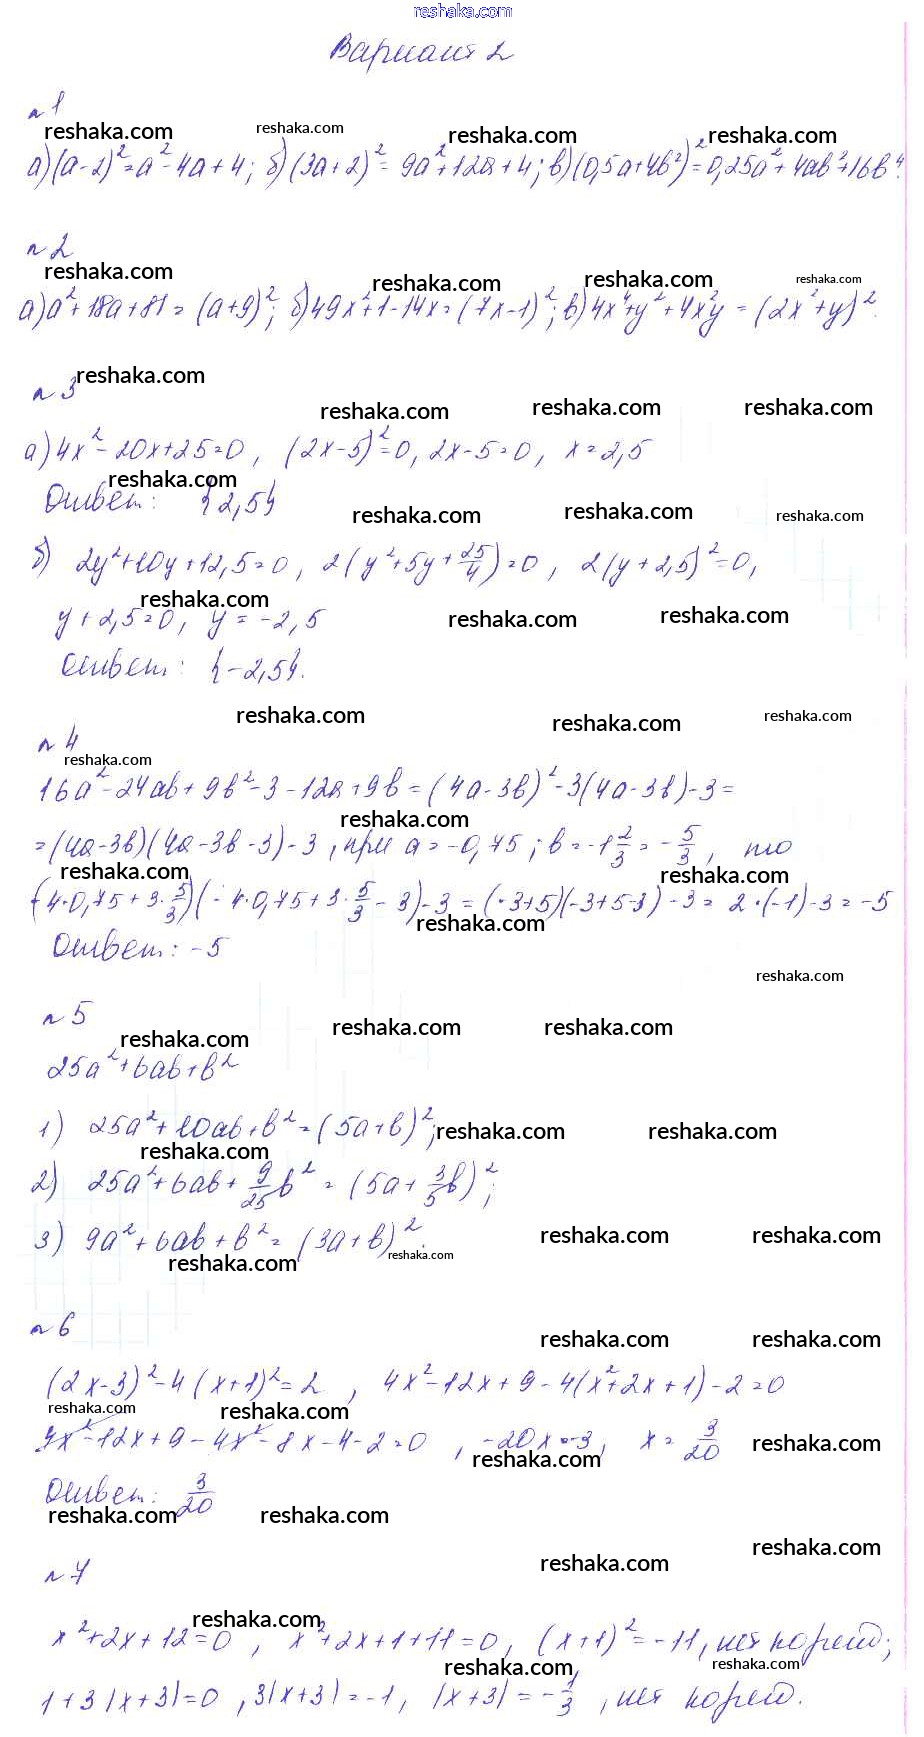 reshaka.com
Вариант 2
n 1
reshaka.com reshaka.com reshaka.com reshaka.com
а) (а-2)² = а² - 4а + 4; б) (3а+2)² = 9а² + 12а + 4; в) (0,5а+4в²)² = 0,25а² + 4ав² + 16в⁴.
n 2
reshaka.com reshaka.com reshaka.com reshaka.com
а) а² + 18а + 81 = (а+9)²; б) 49х² + 1 - 14х = (7х-1)²; в) 4х⁴ + у² + 4х²у = (2х² + у)².
n 3 reshaka.com
reshaka.com reshaka.com reshaka.com
а) 4х² - 20х + 25 = 0, (2х-5)² = 0, 2х-5=0, х = 2,5
reshaka.com
Ответ: {2,5}
reshaka.com reshaka.com reshaka.com
б) 2у² + 10у + 12,5 = 0, 2(у² + 5у + 25/4) = 0, 2(у + 2,5)² = 0,
reshaka.com reshaka.com reshaka.com
у + 2,5 = 0, у = -2,5
Ответ: {-2,5}.
reshaka.com reshaka.com reshaka.com
n 4
reshaka.com
16а² - 24ав + 9в² - 3 - 12а + 9в = (4а-3в)² - 3(4а-3в) - 3 =
reshaka.com
= (4а-3в)(4а-3в-3) - 3, при а = -0,75; в = -1 2/3 = -5/3, то
reshaka.com reshaka.com
(-4·0,75 + 3·5/3)(-4·0,75 + 3·5/3 - 3) - 3 = (-3+5)(-3+5-3) - 3 = 2·(-1) - 3 = -5
reshaka.com
Ответ: -5
reshaka.com
n 5
reshaka.com reshaka.com reshaka.com
25а² + 6ав + в²
1) 25а² + 10ав + в² = (5а+в)²; reshaka.com reshaka.com
reshaka.com
2) 25а² + 6ав + 9/25 в² = (5а + 3/5 в)²;
3) 9а² + 6ав + в² = (3а+в)². reshaka.com reshaka.com
reshaka.com reshaka.com
n 6
reshaka.com reshaka.com
(2х-3)² - 4(х+1)² = 2, 4х² - 12х + 9 - 4(х² + 2х + 1) - 2 = 0
reshaka.com reshaka.com
4х² - 12х + 9 - 4х² - 8х - 4 - 2 = 0, -20х = -3, х = 3/20 reshaka.com
reshaka.com
Ответ: 3/20
reshaka.com reshaka.com
reshaka.com reshaka.com
n 7
reshaka.com
х² + 2х + 12 = 0, х² + 2х + 1 + 11 = 0, (х+1)² = -11, нет корней;
reshaka.com reshaka.com
1 + 3|х+3| = 0, 3|х+3| = -1, |х+3| = -1/3, нет корней.